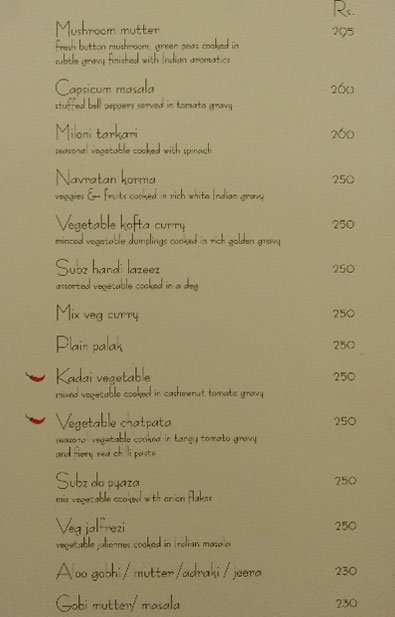 Rs.
Mushroom mutter 295
fresh button mushroom, green peas cooked in
subtle gravy finished with Indian aromatics
Capsicum masala 260
stuffed bell peppers served in tomato gravy
Miloni tarkari 260
seasonal vegetable cooked with spinach
Navratan korma 250
veggies & fruits cooked in rich white Indian gravy
Vegetable kofta curry 250
minced vegetable dumplings cooked in rich golden gravy
Subz handi lazeez 250
assorted vegetable cooked in a deg
Mix veg curry 250
Plain palak 250
Kadai vegetable 250
mixed vegetable cooked in cashewnut tomato gravy
Vegetable chatpata 250
seasonal vegetable cooked in tangy tomato gravy
and fiery red chilli paste
Subz do pyaza 250
mix vegetable cooked with onion flakes
Veg jalfrezi 250
vegetable juliennes cooked in Indian masala
Aloo gobhi / mutter / adraki / jeera 230
Gobi mutter/ masala 230